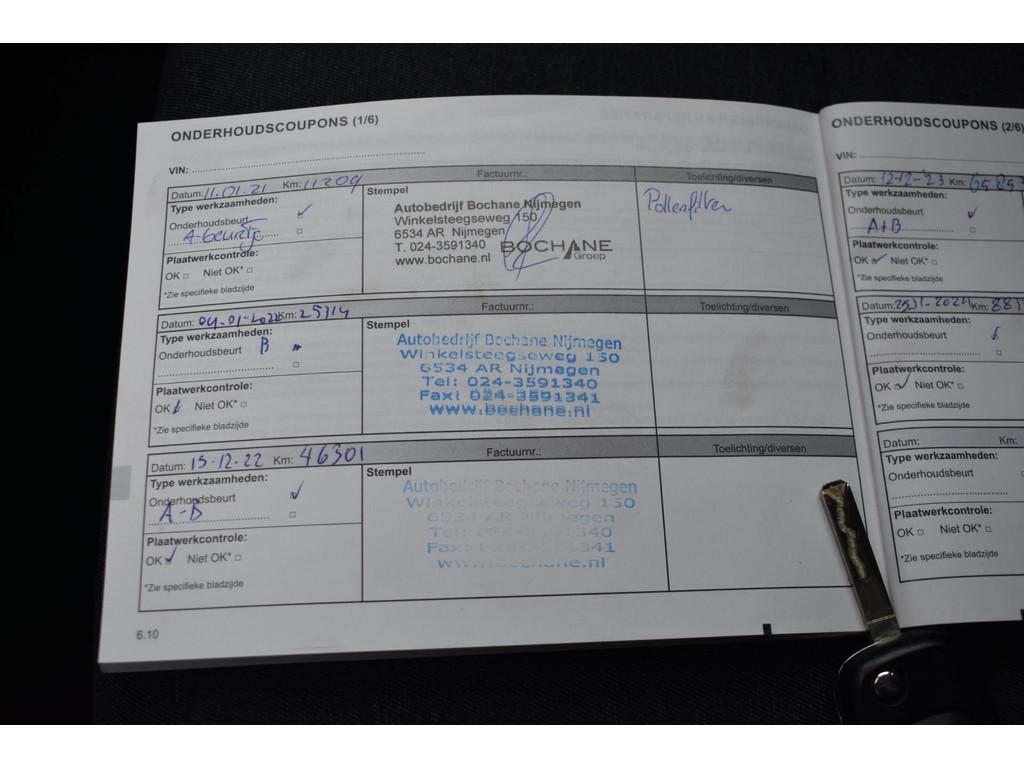 ONDERHOUDSCOUPONS (1/6)
VIN:
Datum: 11.01.21 Km: 11209 Factuurnr.: Toelichting/diversen
Type werkzaamheden:
Onderhoudsbeurt ✓
A-beurtje
Plaatwerkcontrole:
OK □ Niet OK* □
*Zie specifieke bladzijde
Stempel
Autobedrijf Bochane Nijmegen
Winkelsteegseweg 150
6534 AR Nijmegen
T. 024-3591340
www.bochane.nl
BOCHANE
Groep
Pollenfilter
Datum: 04-01-2022 Km: 25714 Factuurnr.: Toelichting/diversen
Type werkzaamheden:
Onderhoudsbeurt B
Plaatwerkcontrole:
OK Niet OK* □
*Zie specifieke bladzijde
Stempel
Autobedrijf Bochane Nijmegen
Winkelsteegseweg 150
6534 AR Nijmegen
Tel: 024-3591340
Fax: 024-3591341
www.bochane.nl
Datum: 15-12-22 Km: 46301 Factuurnr.: Toelichting/diversen
Type werkzaamheden:
Onderhoudsbeurt ✓
A-B
Plaatwerkcontrole:
OK ✓ Niet OK* □
*Zie specifieke bladzijde
Stempel
Autobedrijf Bochane Nijmegen
Winkelsteegseweg 150
6534 AR Nijmegen
Tel: 024-3591340
Fax: 024-3591341
www.bochane.nl
6.10
ONDERHOUDSCOUPONS (2/6)
VIN:
Datum: 12-12-'23 Km:
Type werkzaamheden:
Onderhoudsbeurt ✓
A+B
Plaatwerkcontrole:
OK ✓ Niet OK* □
*Zie specifieke bladzijde
Datum: Km:
Type werkzaamheden:
Onderhoudsbeurt
Plaatwerkcontrole:
OK ✓ Niet OK* □
*Zie specifieke bladzijde
Datum: Km:
Type werkzaamheden:
Onderhoudsbeurt
Plaatwerkcontrole:
OK □ Niet OK* □
*Zie specifieke bladzijde